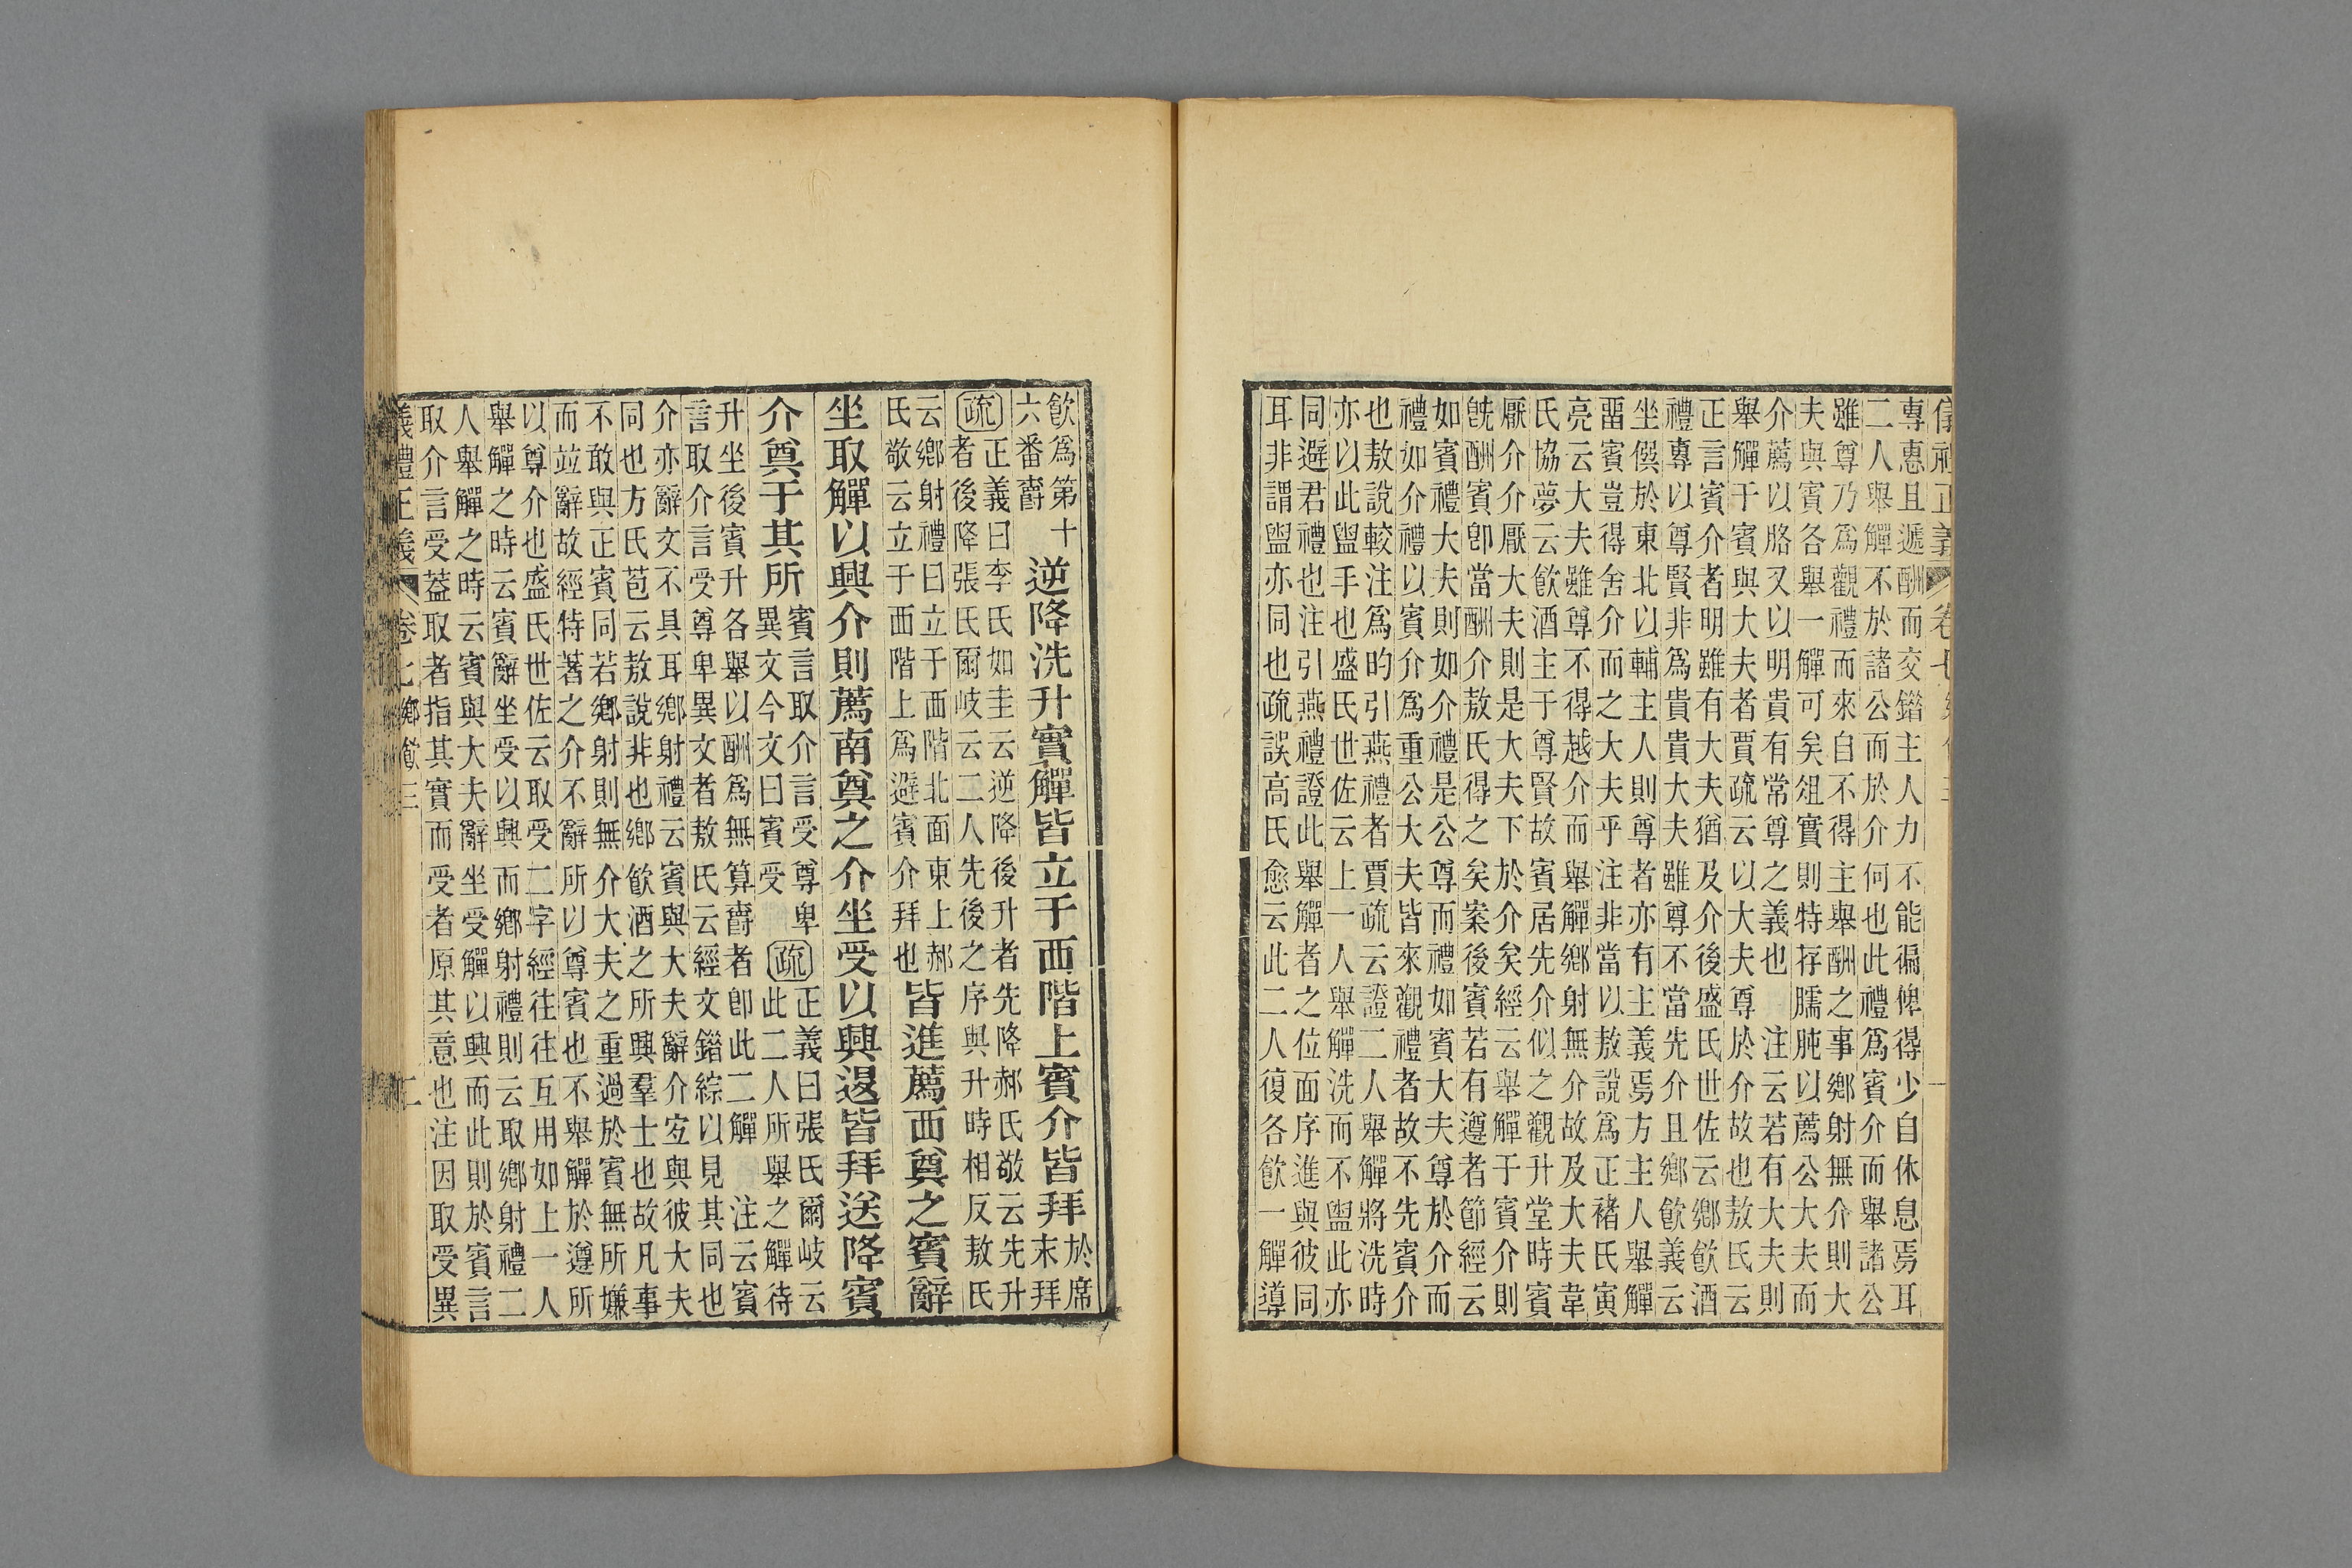 專惠且遞酬而交錯主人力不能徧俾得少自休息焉耳
二人舉觶不於諸公而於介何也此禮爲賓介而舉諸公
雖尊乃爲觀禮而來自不得主舉酬之事鄉射無介則大
夫與賓各舉一觶可矣俎實則特存臑肫以薦公大夫而
介薦以胳又以明貴有常尊之義也　注云若有大夫則
舉觶于賓與大夫者賈疏云以大夫尊於介故也敖氏云
正言賓介者明雖有大夫猶及介後盛氏世佐云鄉飲酒
禮專以尊賢非爲貴貴大夫雖尊不當先介且鄉飲義云
坐僎於東北以輔主人則尊者亦有主義焉方主人舉觶
畱賓豈得舍介而之大夫乎注非當以敖說爲正褚氏寅
亮云大夫雖尊不得越介而舉觶鄉射無介故及大夫韋
氏協夢云飲酒主于尊賢故賓居先介似之觀升堂時賓
厭介介厭大夫則是大夫下於介矣經云舉觶于賓介則
旣酬賓卽當酬介敖氏得之矣案後賓若有遵者節經云
如賓禮大夫則如介禮是公尊而禮如賓大夫尊於介而
禮如介禮以賓介爲重公大夫皆來觀禮者故不先賓介
也敖說較注爲昀引燕禮者賈疏云證二人舉觶將洗時
亦以此盥手也盛氏世佐云上一人舉觶洗而不盥此亦
同遜君禮也注引燕禮證此舉觶者之位面序進與彼同
耳非謂盥亦同也疏誤高氏愈云此二人復各飲一觶導
飲爲第十
六番爵
逆降洗升實觶皆立于西階上賓介皆拜
於席
末拜
疏正義曰李氏如圭云逆降後升者先降郝氏敬云先升
者後降張氏爾岐云二人先後之序與升時相反敖氏
云鄉射禮曰立于西階北面東上郝
氏敬云立于西階上爲避賓介拜也
皆進薦西奠之賓辭
坐取觶以興介則薦南奠之介坐受以興退皆拜送降賓
介奠于其所
賓言取介言受尊卑
異文今文曰賓受
疏正義曰張氏爾岐云
此二人所舉之觶待
升坐後賓升各舉以酬爲無算爵者卽此二觶　注云賓
言取介言受尊卑異文者敖氏云經文錯綜以見其同也
介亦辭文不具耳鄉射禮云賓與大夫辭介宐與彼大夫
同也方氏苞云敖說非也鄉飲酒之所興羣士也故凡事
不敢與正賓同若鄉射則無介大夫之重過於賓無所嫌
而竝辭故經特著之介不辭所以尊賓也不舉觶於遵所
以尊介也盛氏世佐云取受二字經往往互用如上一人
舉觶之時云賓辭坐受以興而鄉射禮則云取鄉射禮二
人舉觶之時云賓與大夫辭坐受觶以興而此則於賓言
取介言受蓋取者指其實而受者原其意也注因取受異
義禮正義 卷七 鄉飲三 二